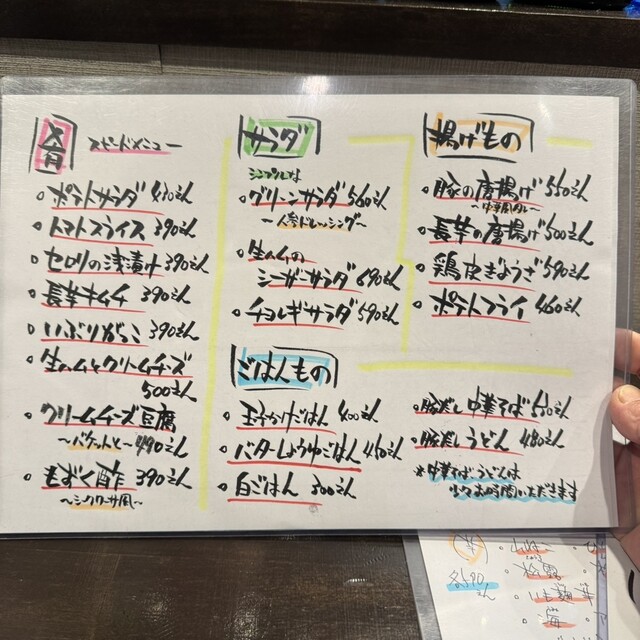 スピードメニュー
・ポテトサラダ 430えん
・トマトスライス 390えん
・セロリの浅漬け 390えん
・長芋キムチ 390えん
・いぶりがっこ 390えん
・生ハムとクリームチーズ
500えん
・クリームチーズ豆腐
〜バケットと〜 490えん
・もずく酢 390えん
〜シークワーサー風〜
サラダ
シンプルな
・グリーンサラダ 560えん
〜人参ドレッシング〜
・生ハムの
シーザーサラダ 690えん
・チョレギサラダ 590えん
揚げもの
・豚の唐揚げ 550えん
〜中華風〜
・長芋の唐揚げ 500えん
・鶏皮ぎょうざ 590えん
・ポテトフライ 460えん
ごはんもの
・玉子かけごはん 400えん
・バターしょうゆごはん 450えん
・白ごはん 300えん
・豚だし中華そば 550えん
・豚だしうどん 480えん
※中華そば・うどんは
少々お時間いただきます
各590
えん